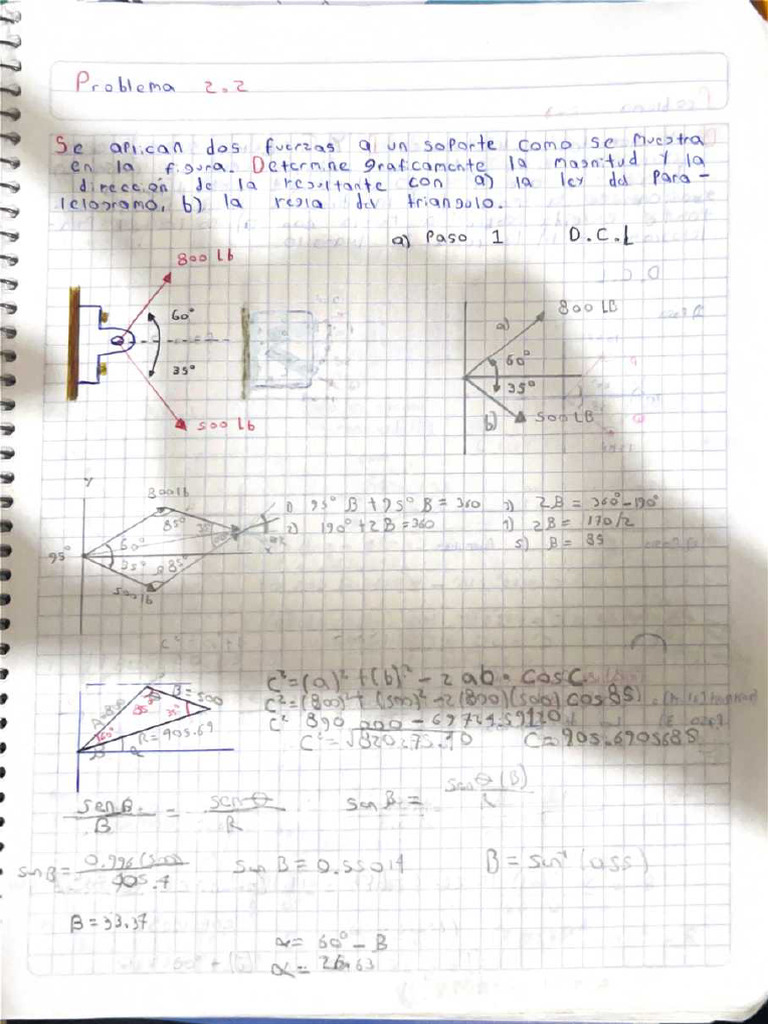 Problema 2.2
Se aplican dos fuerzas a un soporte como se muestra
en la figura. Determine graficamente la magnitud y la
dirección de la resultante con a) la ley del para-
lelogramo, b) la regla del triangulo.
a) Paso 1 D.C.L
800 lb
60°
35°
500 lb
800 LB
a)
60°
35°
b)
500 LB
y
800 lb
85°
95°
60°
35°
85°
500 lb
x
1) 95° B + 95° B = 360
2) 190° + 2B = 360
3) 2B = 360° - 190°
4) 2B = 170/2
5) B = 85
C² = (a)² + (b)² - 2ab · cos C
C² = (800)² + (500)² - 2(800)(500) cos 85
C² 890 000 - 69724.59110
C = 905.6905685
A=800
B=500
85°
60°
R=905.69
B
α
sen B / B = sen θ / R
sen B = sen θ (B) / R
sen B = 0.996 (500) / 905.7
sen B = 0.55014
B = sen⁻¹ (0.55)
B = 33.37
α = 60° - B
α = 26.63